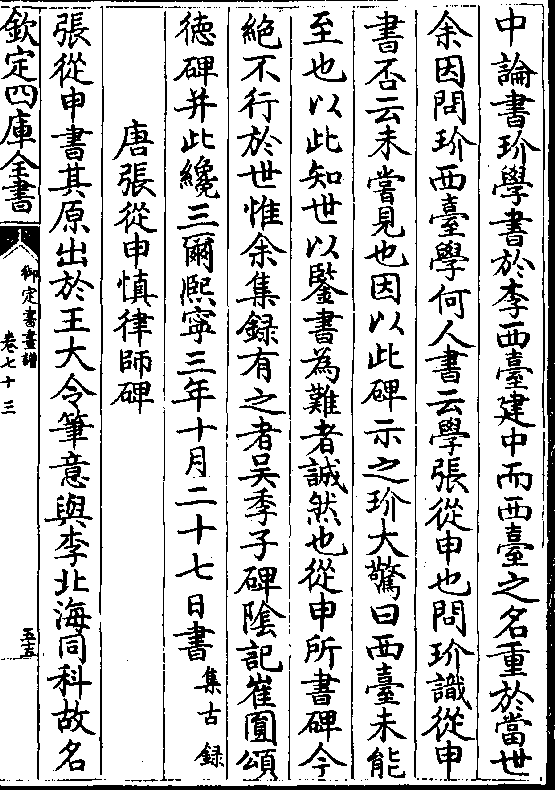 中論書玠學書於李西臺建中而西臺之名重於當世
余因問玠西臺學何人書云學張從申也問玠識從申
書否云未嘗見也因以此碑示之玠大驚曰西臺未能
至也以此知世以鑒書為難者誠然也從申所書碑今
絶不行於世惟余集録有之者吴季子碑隂記崔圓頌
徳碑并此纔三爾熙寧三年十月二十七日書 集古錄
唐張從申慎律師碑
張從申書其原出於王大令筆意與李北海同科故名
欽定四庫全書
御定書畫譜
卷七十三
五十五